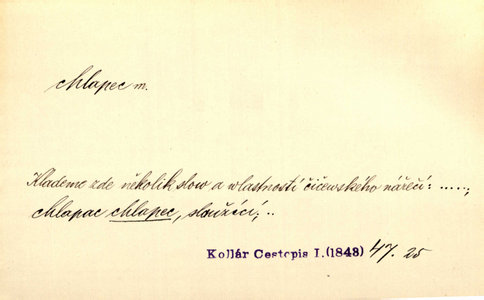 chlapec m.
Klademe zde několik slow a wlastností čičewského nářečí: .....;
chlapac chlapec, sloužící; ..
Kollár Cestopis I. (1843) 47. 25